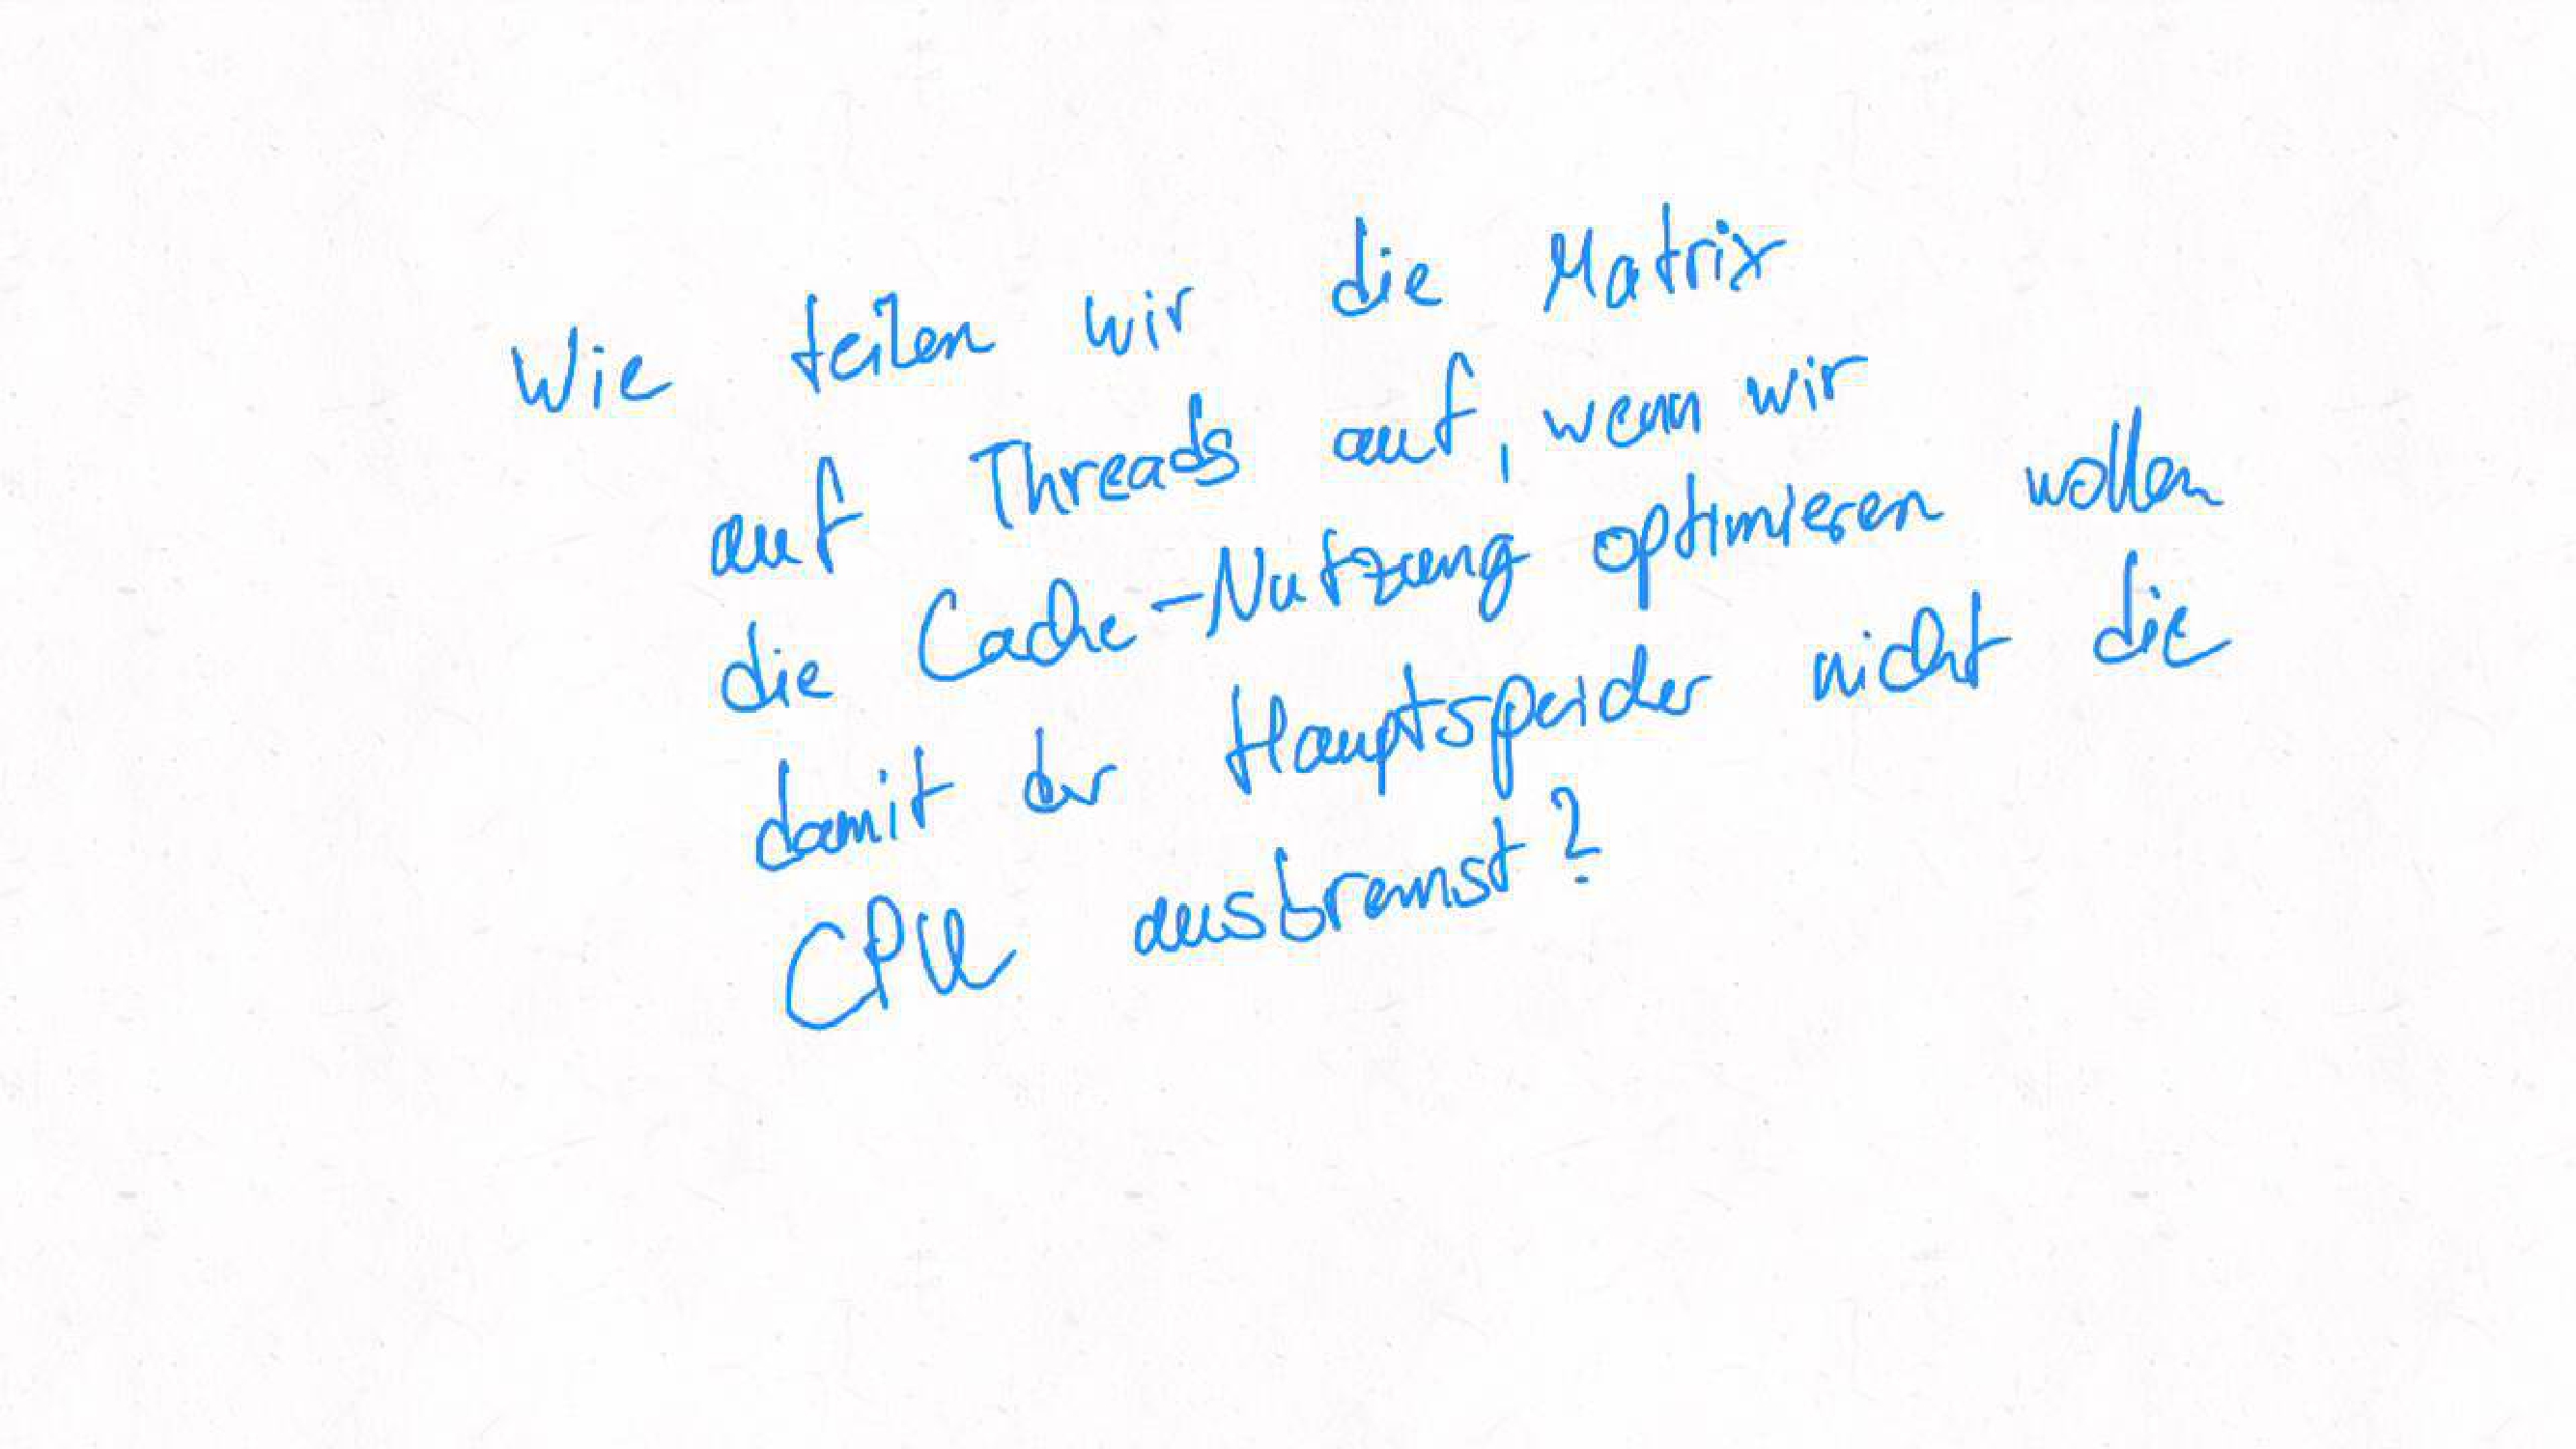 Wie teilen wir die Matrix
auf Threads auf, wenn wir
die Cache-Nutzung optimieren wollen
damit der Hauptspeicher nicht die
CPU ausbremst?